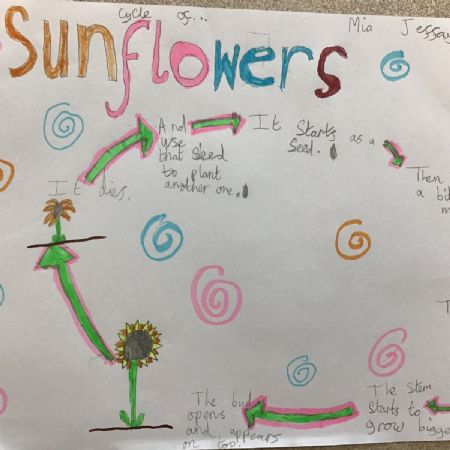 Cycle of...
Mia Jessa
Sunflowers
It starts as a
seed.
Then
a bi
The stem
starts to
grow bigge
The bud
opens
and appears
on top!
It dies,
And
use
that seed
to plant
another one.